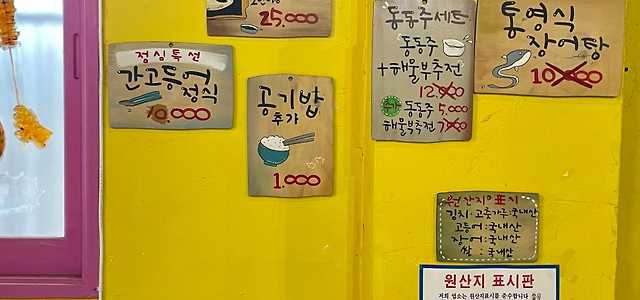 25.000
점심특선
간고등어
정식
10.000
공기밥
추가
1.000
동동주세트
동동주
+해물부추전
12.000
추가 동동주 5.000
해물부추전 7.000
통영식
장어탕
10.000
원산지 표지
김치·고춧가루:국내산
고등어:국내산
장어:국내산
쌀:국내산
원산지 표시판
저희 업소는 원산지표시를 준수합니다